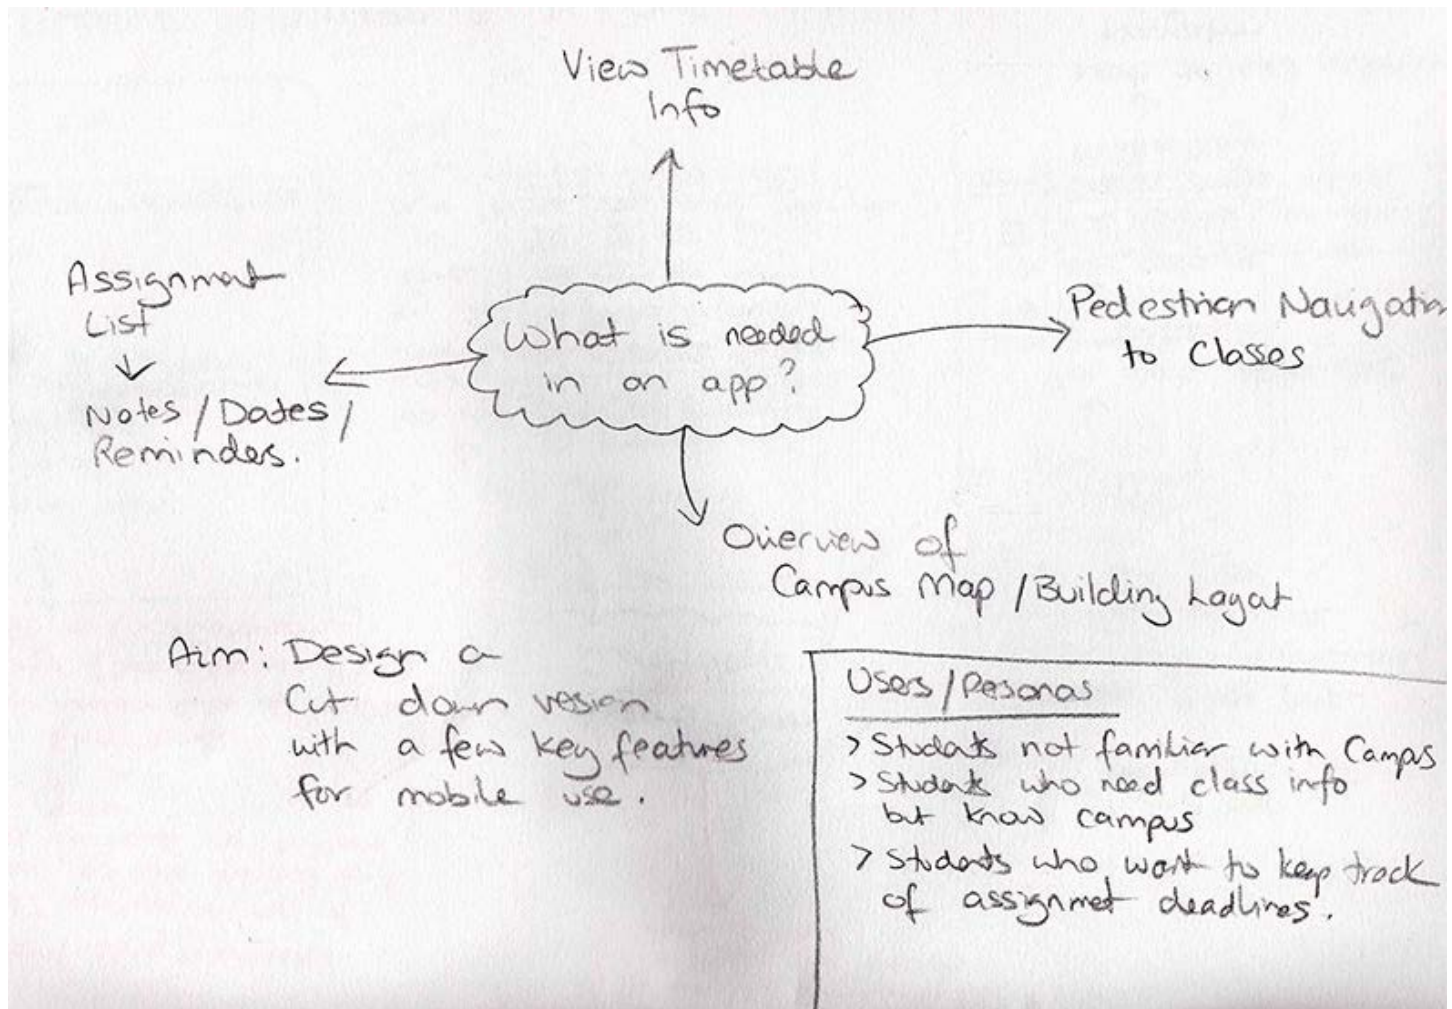 View Timetable
Info
Assignment
List
Notes / Dates /
Reminders.
What is needed
in an app?
Pedestrian Navigatio
to Classes
Overview of
Campus Map / Building Layout
Aim: Design a
Cut down version
with a few key features
for mobile use.
Users / Personas
> Students not familiar with Campus
> Students who need class info
but know campus
> Students who want to keep track
of assignment deadlines.